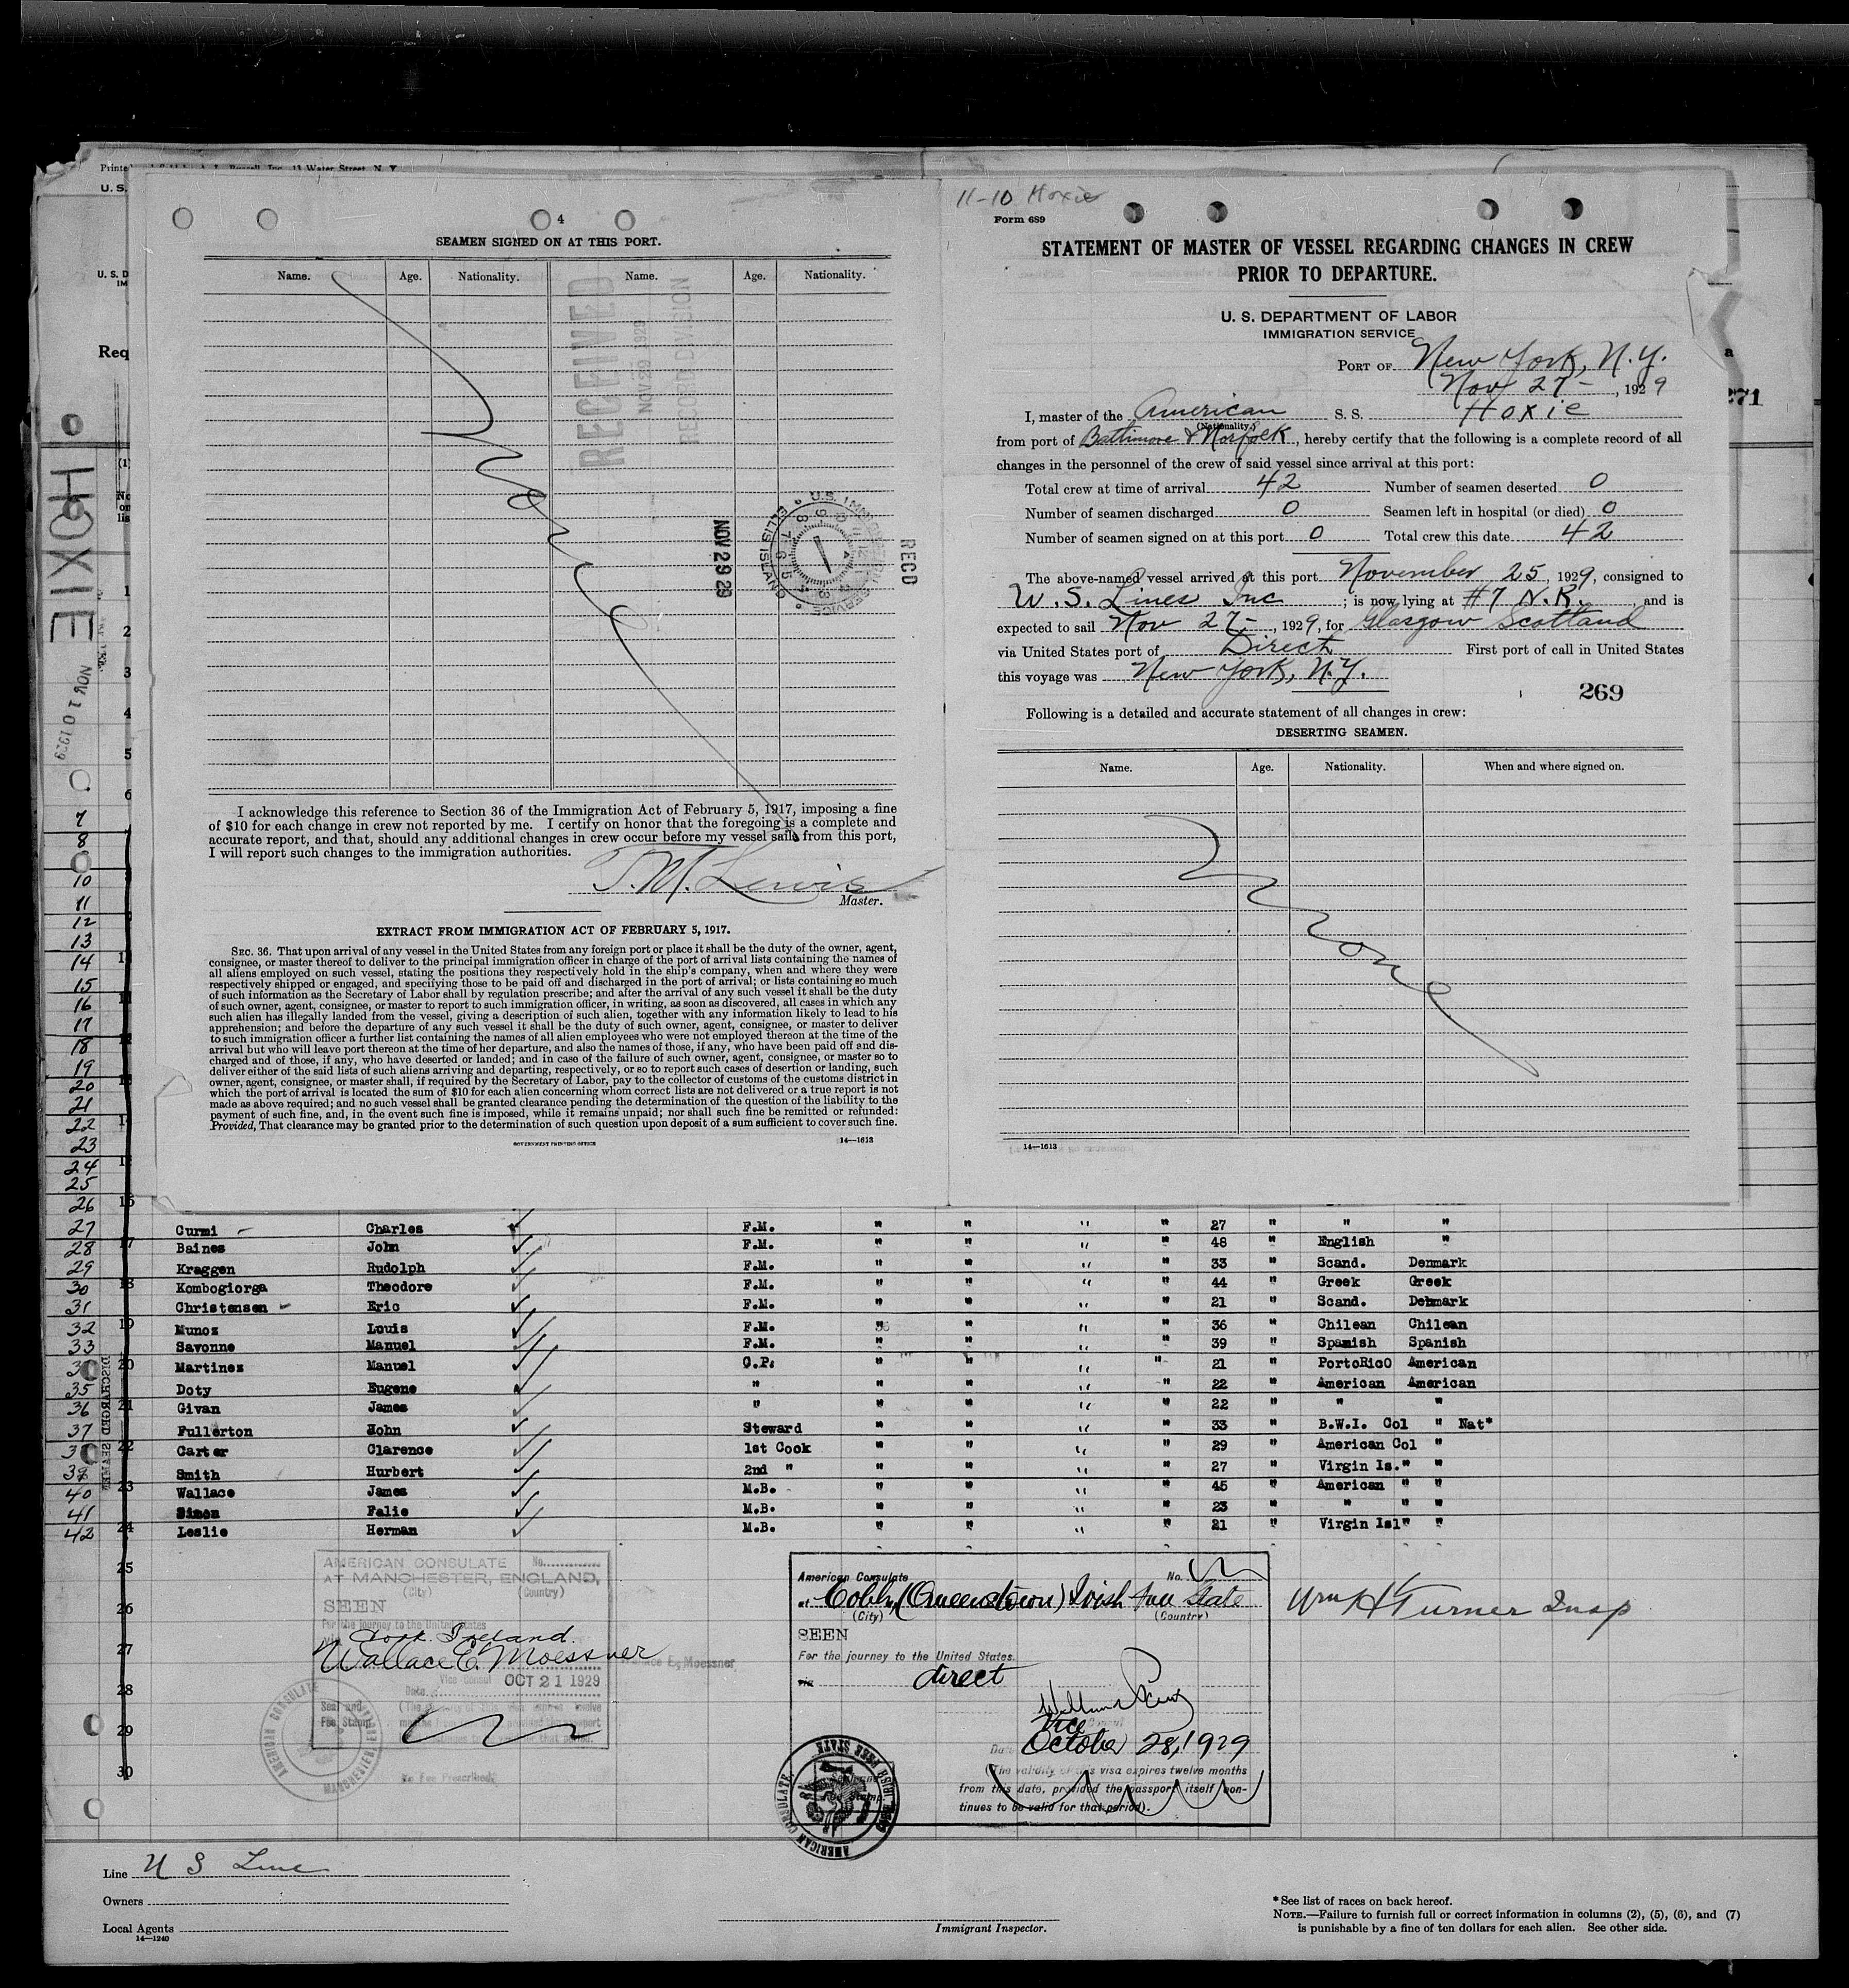 Printe
U. S.
U. S. D
IM
Req
HOXIE
NOV 10 1929
4
SEAMEN SIGNED ON AT THIS PORT.
Name. Age. Nationality. Name. Age. Nationality.
None
RECEIVED
NOV 29 1929
RECORD DIVISION
NOV 29 29
U.S. IMMIGRATION SERVICE
ELLIS ISLAND
RECD
I acknowledge this reference to Section 36 of the Immigration Act of February 5, 1917, imposing a fine
of $10 for each change in crew not reported by me. I certify on honor that the foregoing is a complete and
accurate report, and that, should any additional changes in crew occur before my vessel sails from this port,
I will report such changes to the immigration authorities.
T. M. Lewis
Master.
EXTRACT FROM IMMIGRATION ACT OF FEBRUARY 5, 1917.
SEC. 36. That upon arrival of any vessel in the United States from any foreign port or place it shall be the duty of the owner, agent,
consignee, or master thereof to deliver to the principal immigration officer in charge of the port of arrival lists containing the names of
all aliens employed on such vessel, stating the positions they respectively hold in the ship's company, when and where they were
respectively shipped or engaged, and specifying those to be paid off and discharged in the port of arrival; or lists containing so much
of such information as the Secretary of Labor shall by regulation prescribe; and after the arrival of any such vessel it shall be the duty
of such owner, agent, consignee, or master to report to such immigration officer, in writing, as soon as discovered, all cases in which any
such alien has illegally landed from the vessel, giving a description of such alien, together with any information likely to lead to his
apprehension; and before the departure of any such vessel it shall be the duty of such owner, agent, consignee, or master to deliver
to such immigration officer a further list containing the names of all alien employees who were not employed thereon at the time of the
arrival but who will leave port thereon at the time of her departure, and also the names of those, if any, who have been paid off and dis-
charged and of those, if any, who have deserted or landed; and in case of the failure of such owner, agent, consignee, or master so to
deliver either of the said lists of such aliens arriving and departing, respectively, or so to report such cases of desertion or landing, such
owner, agent, consignee, or master shall, if required by the Secretary of Labor, pay to the collector of customs of the customs district in
which the port of arrival is located the sum of $10 for each alien concerning whom correct lists are not delivered or a true report is not
made as above required; and no such vessel shall be granted clearance pending the determination of the question of the liability to the
payment of such fine, and, in the event such fine is imposed, while it remains unpaid; nor shall such fine be remitted or refunded:
Provided, That clearance may be granted prior to the determination of such question upon deposit of a sum sufficient to cover such fine.
GOVERNMENT PRINTING OFFICE
14—1613
11-10 Hoxie
Form 689
STATEMENT OF MASTER OF VESSEL REGARDING CHANGES IN CREW
PRIOR TO DEPARTURE.
U. S. DEPARTMENT OF LABOR
IMMIGRATION SERVICE
PORT OF New York, N.Y.
Nov 27 - , 1929
I, master of the American S. S. Hoxie
(Nationality.)
from port of Baltimore & Norfolk, hereby certify that the following is a complete record of all
changes in the personnel of the crew of said vessel since arrival at this port:
Total crew at time of arrival 42 Number of seamen deserted 0
Number of seamen discharged 0 Seamen left in hospital (or died) 0
Number of seamen signed on at this port 0 Total crew this date 42
The above-named vessel arrived at this port November 25, 1929, consigned to
U. S. Lines Inc ; is now lying at #7 N.R. and is
expected to sail Nov 27 - , 1929, for Glasgow Scotland
via United States port of Direct First port of call in United States
this voyage was New York, N.Y.
269
271
Following is a detailed and accurate statement of all changes in crew:
DESERTING SEAMEN.
Name. Age. Nationality. When and where signed on.
None
14—1613
27 Curmi - Charles F.M. " " " " 27 " " "
28 Baines John F.M. " " " " 48 " English "
29 Kraggen Rudolph F.M. " " " " 33 " Scand. Denmark
30 Kombogiorga Theodore F.M. " " " " 44 " Greek Greek
31 Christensen - Eric F.M. " " " " 21 " Scand. Denmark
32 Munoz Louis F.M. " " " " 36 " Chilean Chilean
33 Savonne Manuel F.M. " " " " 39 " Spanish Spanish
Martinez Manuel C.P. " " " " 21 " PortoRico American
35 Doty Eugene " " " " " 22 " American American
36 Givan James " " " " " 22 " " "
37 Fullerton John Steward " " " " 33 " B.W.I. Col " Nat*
Carter Clarence 1st Cook " " " " 29 " American Col "
39 Smith Hurbert 2nd " " " " " 27 " Virgin Is." "
40 Wallace James M.B. " " " " 45 " American " "
41 Simon Falie M.B. " " " " 23 " " " "
42 Leslie Herman M.B. " " " " 21 " Virgin Isl" "
DISCHARGED SEAMEN
AMERICAN CONSULATE No.
AT MANCHESTER, ENGLAND,
(City) (Country)
SEEN
For the journey to the United States
via Cork Ireland.
Wallace E. Moessner
Wallace E. Moessner
Vice Consul OCT 21 1929
Date
Seal and
Fee Stamp
No Fee Prescribed
AMERICAN CONSULATE
MANCHESTER, ENGLAND
American Consulate No.
at Cobh, (Queenstown) Irish Free State
(City) (Country)
SEEN
For the journey to the United States.
via direct
Vice Consul
Date October 28, 1929
(The validity of this visa expires twelve months
from this date, provided the passport itself con-
tinues to be valid for that period).
AMERICAN CONSULATE
IRISH FREE STATE
Wm H Turner Insp
Line U S Line
Owners
Local Agents
14—1240
Immigrant Inspector.
*See list of races on back hereof.
NOTE.—Failure to furnish full or correct information in columns (2), (5), (6), and (7)
is punishable by a fine of ten dollars for each alien. See other side.